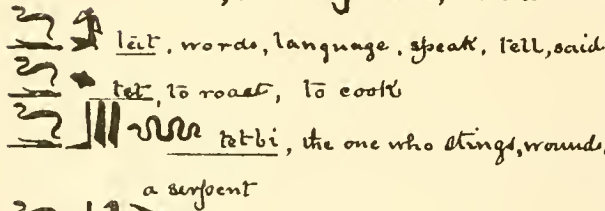 tet, words, language, speak, tell, said
tet, to roast, to cook
tetbi, the one who stings, wounds,
a serpent